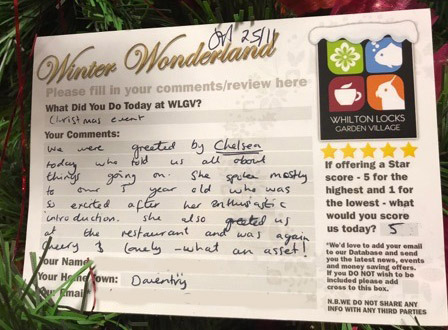 Sat 25/11
Winter Wonderland
Please fill in your comments/review here
What Did You Do Today at WLGV?
Christmas event
Your Comments:
We were greeted by Chelsea
today who told us all about
things going on. She spoke mostly
to our 5 year old who was
so excited after her enthusiastic
introduction. She also greeted us
at the restaurant and was again
cheery & lovely - what an asset!
Your Name
Your Home Town: Daventry
Your Email
WHILTON LOCKS
GARDEN VILLAGE
If offering a Star
score - 5 for the
highest and 1 for
the lowest - what
would you score
us today? 5
"We'd love to add your email
to our Database and send
you the latest news, events
and money saving offers.
If you DO NOT wish to be
included please add
cross to this box.
N.B.WE DO NOT SHARE ANY
INFO WITH ANY THIRD PARTIES